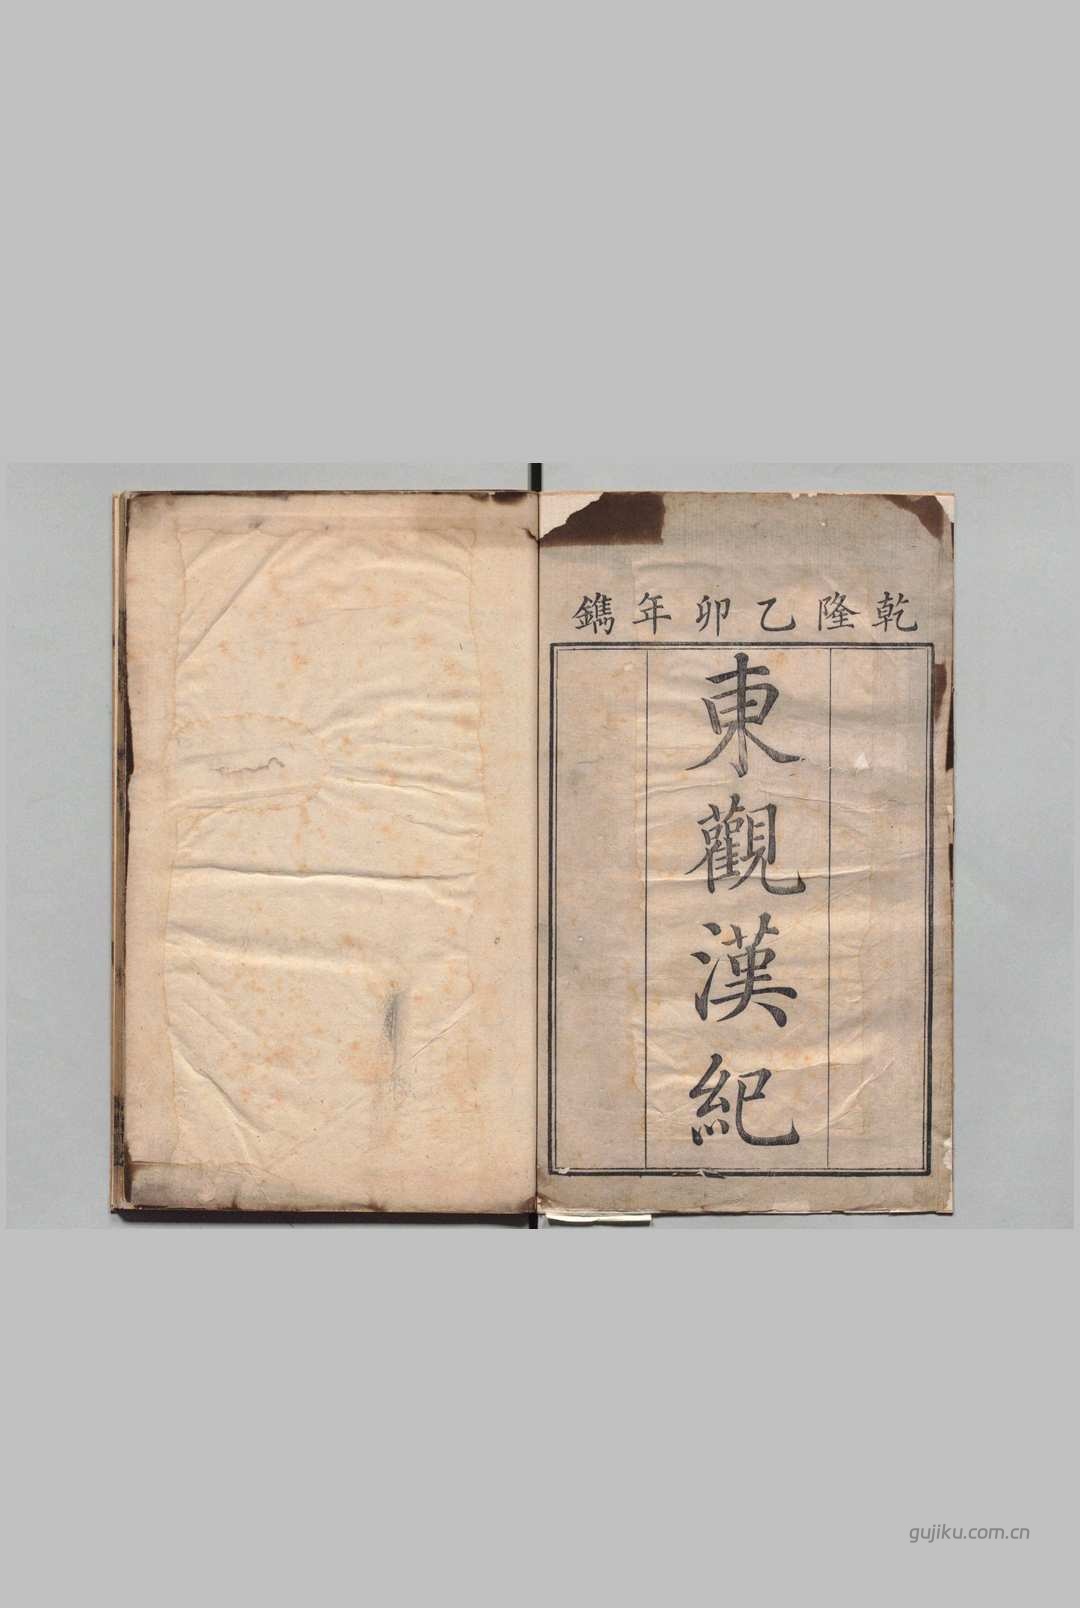 乾隆乙卯年鐫
東觀漢紀
gujiku.com.cn